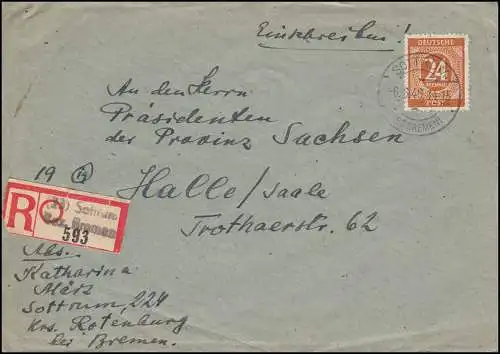 Einschreiben!
DEUTSCHE
24
POST
SOTTRUM
(BZ. BREMEN)
An den Herrn
Präsidenten
der Provinz Sachsen
19 (19)
Halle/Saale
Trothaerstr. 62
R
(23) Sottrum
Bez. Bremen
593
Abs.
Katharina
März
Sottrum, 224
Krs. Rotenburg
bei Bremen.